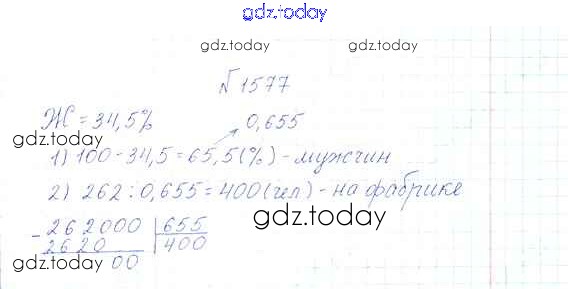 gdz.today
gdz.today gdz.today
№1577
Ж = 34,5% 0,655
gdz.today
1) 100 - 34,5 = 65,5 (%) - мужчин
2) 262 : 0,655 = 400 (чел) - на фабрике
gdz.today
- 262000 | 655
2620 | 400
gdz.today 00